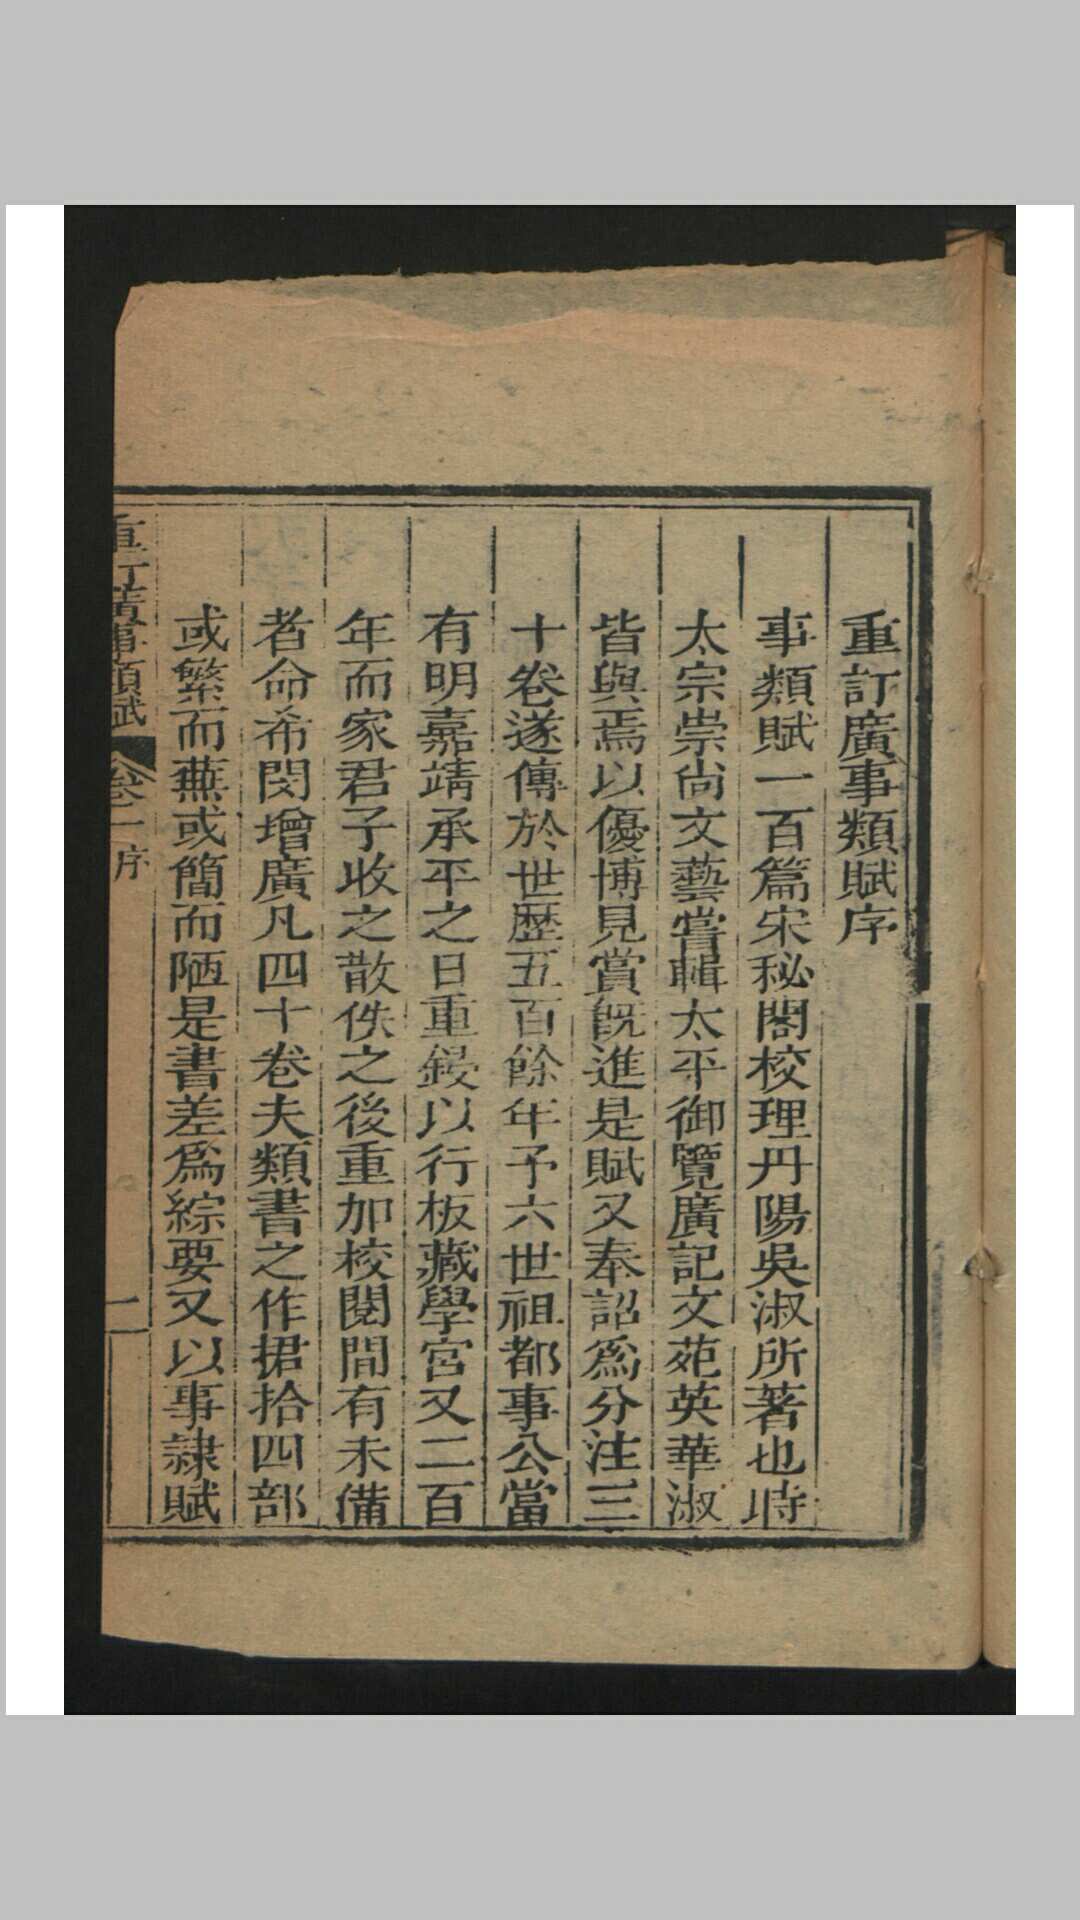 重訂廣事類賦序
事類賦一百篇宋秘閣校理丹陽吳淑所著也時
太宗崇尚文藝嘗輯太平御覽廣記文苑英華淑
皆與焉以優博見賞旣進是賦又奉詔爲分注三
十卷遂傳於世歷五百餘年予六世祖都事公當
有明嘉靖承平之日重鋟以行板藏學宮又二百
年而家君子收之散佚之後重加校閱間有未備
者命希閔增廣凡四十卷夫類書之作捃拾四部
或繁而蕪或簡而陋是書差爲綜要又以事隷賦
重訂廣事類賦 卷一 序 一